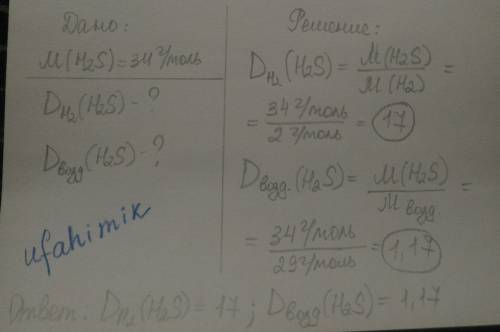 Дано:
M(H₂S)=34 г/моль
D_H₂(H₂S)-?
D_возд(H₂S)-?
ufahimik
Решение:
D_H₂(H₂S)= M(H₂S)/M(H₂) =
= 34 г/моль / 2 г/моль = 17
D_возд.(H₂S)= M(H₂S)/M возд. =
= 34 г/моль / 29 г/моль = 1,17
Ответ: D_H₂(H₂S)=17; D_возд(H₂S)=1,17